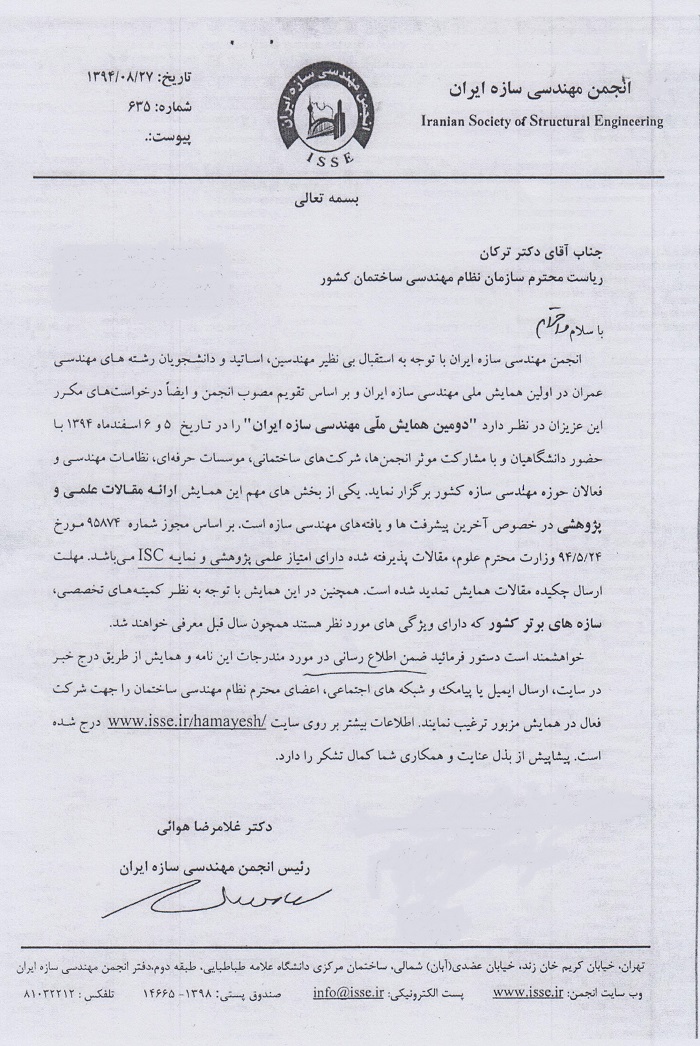 انجمن مهندسی سازه ایران
Iranian Society of Structural Engineering
انجمن مهندسی سازه ایران
ISSE
تاریخ: ۱۳۹۴/۰۸/۲۷
شماره: ۶۳۵
پیوست:.
بسمه تعالی
جناب آقای دکتر ترکان
ریاست محترم سازمان نظام مهندسی ساختمان کشور
با سلام و احترام
انجمن مهندسی سازه ایران با توجه به استقبال بی نظیر مهندسین، اساتید و دانشجویان رشته های مهندسی
عمران در اولین همایش ملی مهندسی سازه ایران و بر اساس تقویم مصوب انجمن و ایضاً درخواست‌های مکرر
این عزیزان در نظر دارد "دومین همایش ملّی مهندسی سازه ایران" را در تاریخ ۵ و ۶ اسفندماه ۱۳۹۴ با
حضور دانشگاهیان و با مشارکت موثر انجمن‌ها، شرکت‌های ساختمانی، موسسات حرفه‌ای، نظامات مهندسی و
فعالان حوزه مهندسی سازه کشور برگزار نماید. یکی از بخش های مهم این همایش ارائه مقالات علمی و
پژوهشی در خصوص آخرین پیشرفت ها و یافته‌های مهندسی سازه است. بر اساس مجوز شماره ۹۵۸۷۴ مورخ
۹۴/۵/۲۴ وزارت محترم علوم، مقالات پذیرفته شده دارای امتیاز علمی پژوهشی و نمایه ISC می‌باشد. مهلت
ارسال چکیده مقالات همایش تمدید شده است. همچنین در این همایش با توجه به نظر کمیته‌های تخصصی،
سازه های برتر کشور که دارای ویژگی های مورد نظر هستند همچون سال قبل معرفی خواهند شد.
خواهشمند است دستور فرمائید ضمن اطلاع رسانی در مورد مندرجات این نامه و همایش از طریق درج خبر
در سایت، ارسال ایمیل یا پیامک و شبکه های اجتماعی، اعضای محترم نظام مهندسی ساختمان را جهت شرکت
فعال در همایش مزبور ترغیب نمایند. اطلاعات بیشتر بر روی سایت www.isse.ir/hamayesh/ درج شده
است. پیشاپیش از بذل عنایت و همکاری شما کمال تشکر را دارد.
دکتر غلامرضا هوائی
رئیس انجمن مهندسی سازه ایران
تهران، خیابان کریم خان زند، خیابان عضدی(آبان) شمالی، ساختمان مرکزی دانشگاه علامه طباطبایی، طبقه دوم،دفتر انجمن مهندسی سازه ایران
وب سایت انجمن: www.isse.ir پست الکترونیکی: info@isse.ir صندوق پستی: ۱۳۹۸- ۱۴۶۶۵ تلفکس : ۸۱۰۳۲۲۱۲